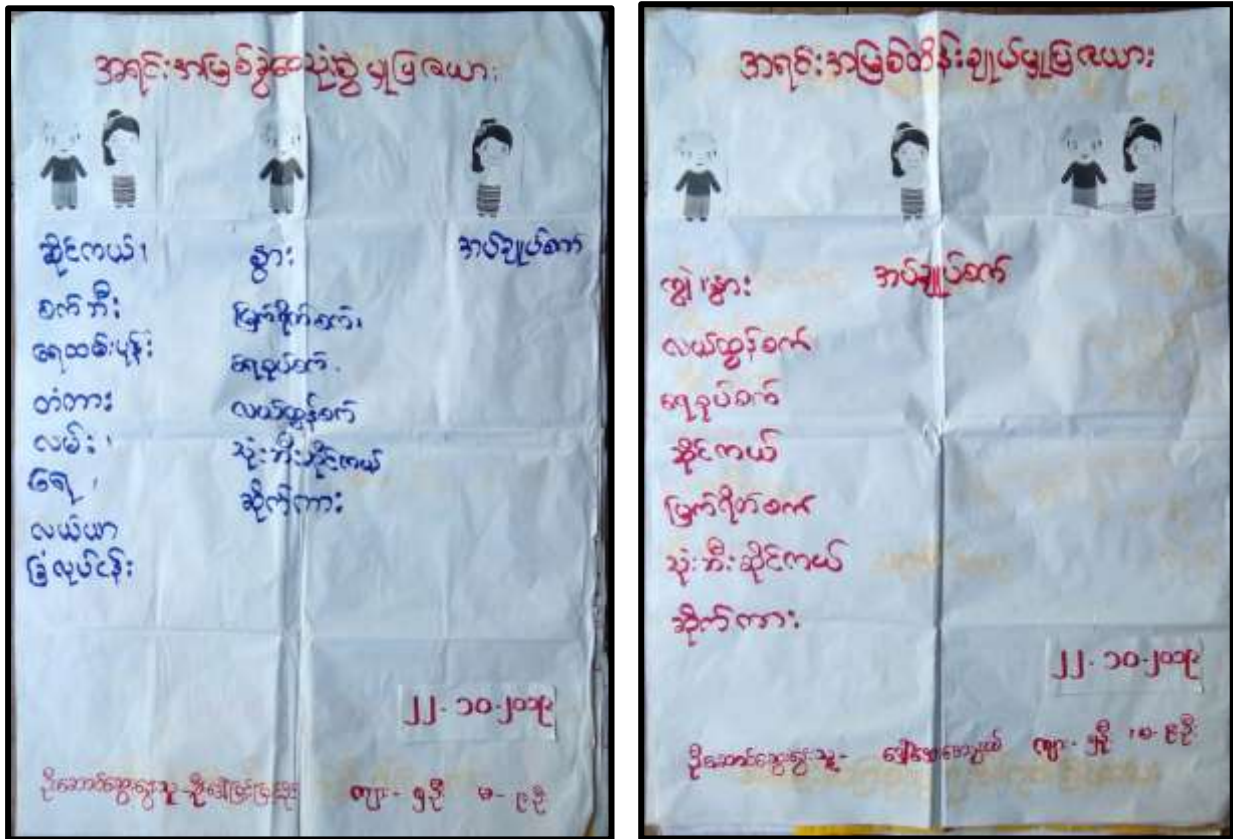 အရင်းအမြစ်ခွဲဝေသုံးစွဲမှုပြဇယား
ဆိုင်ကယ်၊
စက်ဘီး
ရေထမ်းပုန်း
တံတား
လမ်း၊
ရေ၊
လယ်ယာ
ခြံလုပ်ငန်း
နွား
မြက်ရိတ်စက်၊
ရေစုပ်စက်၊
လယ်ထွန်စက်
သုံးဘီးဆိုင်ကယ်
ဆိုက်ကား
အပ်ချုပ်စက်
၂၂-၁၀-၂၀၁၉
ဦးဆောင်ဆွေးနွေးသူ - ကျား - ၅ဦး မ - ၉ဦး
အရင်းအမြစ်ထိန်းချုပ်မှုပြဇယား
ကျွဲ၊နွား
လယ်ထွန်စက်
ရေစုပ်စက်
ဆိုင်ကယ်
မြက်ရိတ်စက်
သုံးဘီးဆိုင်ကယ်
ဆိုက်ကား
အပ်ချုပ်စက်
၂၂-၁၀-၂၀၁၉
ဦးဆောင်ဆွေးနွေးသူ - ကျား - ၅ဦး ၊မ - ၉ဦး